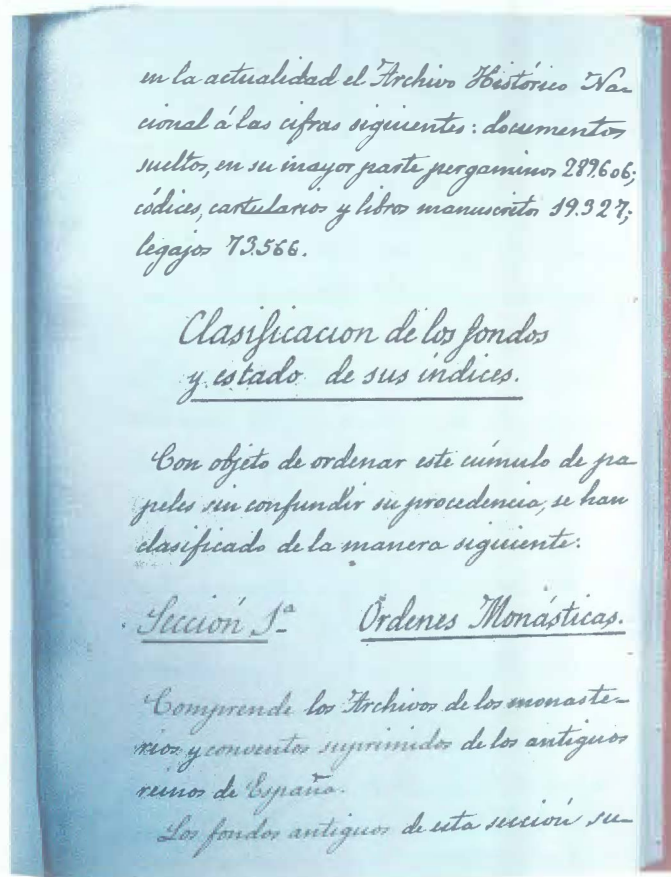 en la actualidad el Archivo Histórico Na-
cional á las cifras siguientes: documentos
sueltos, en su mayor parte pergaminos 289.606;
códices, cartularios y libros manuscritos 19.327;
legajos 73.566.
Clasificacion de los fondos
y estado de sus índices.
Con objeto de ordenar este cúmulo de pa
peles sin confundir su procedencia, se han
clasificado de la manera siguiente:
Sección 1ª Órdenes Monásticas.
Comprende los Archivos de los monaste-
rios y conventos suprimidos de los antiguos
reinos de España.
Los fondos antiguos de esta sección su-